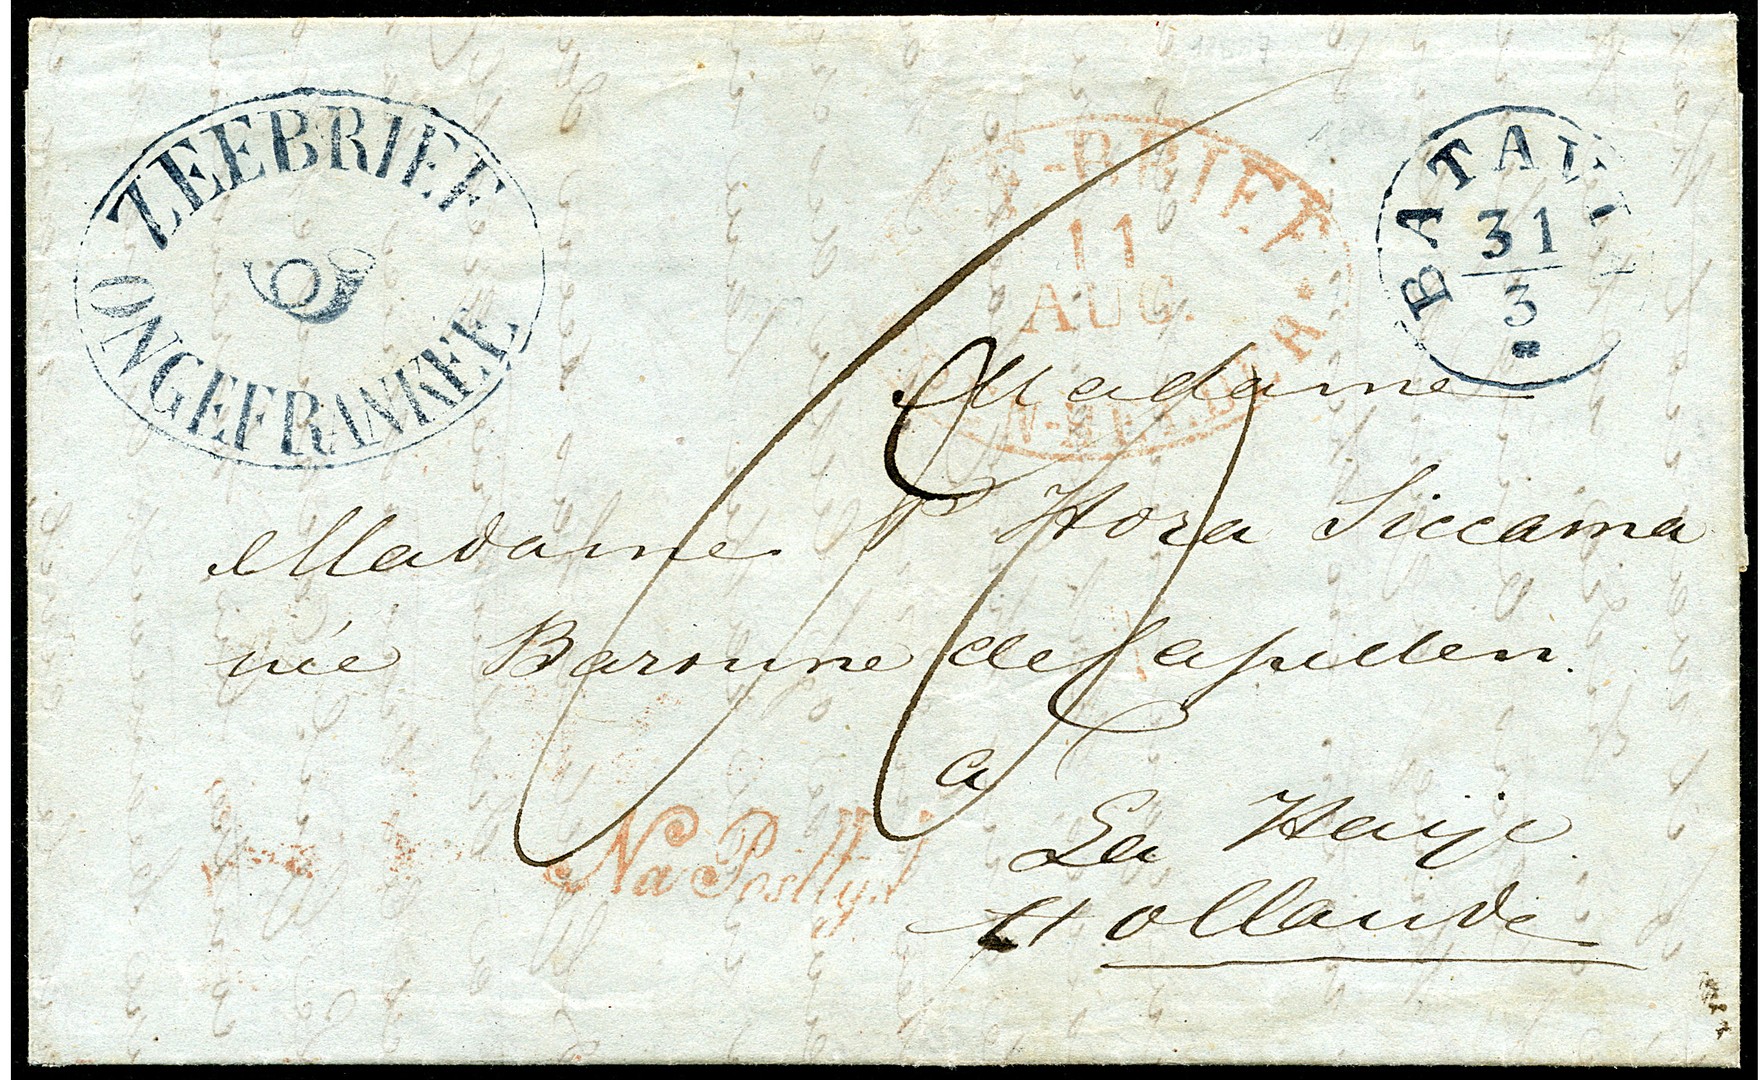 ZEEBRIEF
ONGEFRANKEE
-BRIEF
11
AUG.
BATAVIA
31
3
Madame
Madame Hora Siccama
née Baronne de Capellen.
a
La Haije
Hollande
Na Posttyd